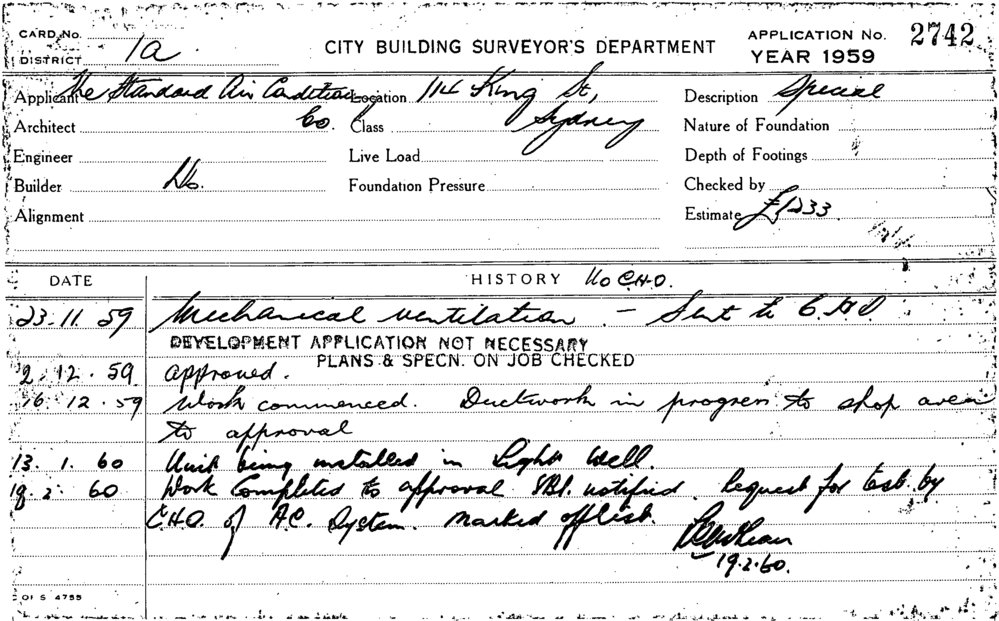 CARD No.
DISTRICT 1a
CITY BUILDING SURVEYOR'S DEPARTMENT
APPLICATION No. 2742
YEAR 1959
Applicant The Standard Air Conditioning Co.
Location 114 King St, Sydney
Description Special
Architect
Class
Nature of Foundation
Engineer
Live Load
Depth of Footings
Builder Do.
Foundation Pressure
Checked by
Alignment
Estimate £1233
DATE
HISTORY No C.H.O.
23.11.59 Mechanical ventilation - Sent to C.H.O.
DEVELOPMENT APPLICATION NOT NECESSARY
PLANS & SPECN. ON JOB CHECKED
2.12.59 approved.
16.12.59 Work commenced. Ductwork in progress to shop area
to approval
13.1.60 Unit being installed in Light Well.
18.2.60 Work Completed to approval notified. Request for test by
C.H.O. of A.C. System. Marked off list.
19.2.60.
OI S 4755